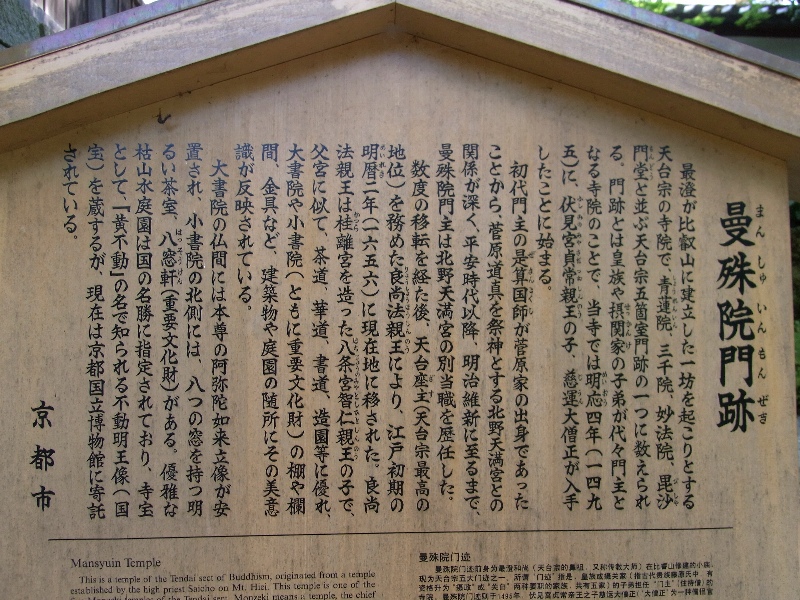 曼殊院門跡
まんしゅいんもんぜき
最澄が比叡山に建立した一坊を起こりとする
天台宗の寺院で、青蓮院、三千院、妙法院、毘沙
門堂と並ぶ天台宗五箇室門跡の一つに数えられ
る。門跡とは皇族や摂関家の子弟が代々門主と
なる寺院のことで、当寺では明応四年(一四九
五)に、伏見宮貞常親王の子、慈運大僧正が入手
したことに始まる。
初代門主の是算国師が菅原家の出身であった
ことから、菅原道真を祭神とする北野天満宮との
関係が深く、平安時代以降、明治維新に至るまで、
曼殊院門主は北野天満宮の別当職を歴任した。
数度の移転を経た後、天台座主(天台宗最高の
地位)を務めた良尚法親王により、江戸初期の
明暦二年(一六五六)に現在地に移された。良尚
法親王は桂離宮を造った八条宮智仁親王の子で、
父宮に似て、茶道、華道、書道、造園等に優れ、
大書院や小書院(ともに重要文化財)の棚や欄
間、金具など、建築物や庭園の随所にその美意
識が反映されている。
大書院の仏間には本尊の阿弥陀如来立像が安
置され、小書院の北側には、八つの窓を持つ明
るい茶室、八窓軒(重要文化財)がある。優雅な
枯山水庭園は国の名勝に指定されており、寺宝
として、「黄不動」の名で知られる不動明王像(国
宝)を蔵するが、現在は京都国立博物館に寄託
されている。
京都市
Mansyuin Temple
This is a temple of the Tendai sect of Buddhism, originated from a temple
established by the high priest Saicho on Mt. Hiei. This temple is one of the
Monzeki temples of the Tendai sect. Monzeki means a temple, the chief
曼殊院门迹
曼殊院门迹前身为最澄和尚(天台宗的鼻祖,又称传教大师)在比睿山修建的小族,
现为天台宗五大门迹之一。所谓"门迹"指是,皇族或摄关家(指古代贵族藤原氏中,有
资格升为"摄政"或"关白"两种要职的家族,共有五家)的子弟担任"门主"(住持僧)的